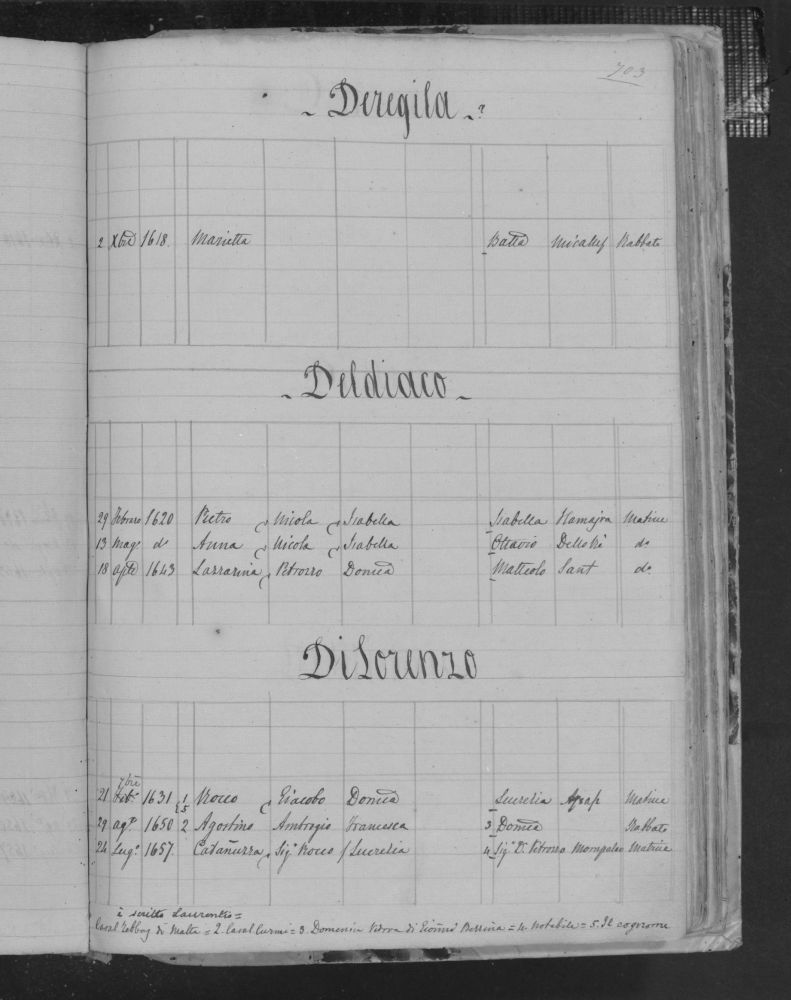 703
- Deregila - ?
2 Xbre 1618. Marietta Batta Micallef Rabbato
- Deldiaco -
29 Febraro 1620 Pietro Nicola Isabella Isabella Hamajra Matrice
13 Mago do Anna Nicola Isabella Ottavio Dello Rè do
18 aple 1643 Lazzarina Petrozzo Domca Matteolo Sant do
DiLorenzo
7bre
21 1631 1 5 Rocco Giacobo Domca Lucretia Axsap Matrice
29 ago 1650 2 Agostino Ambrogio Francesca 3 Domca Rabbato
24 Lugo 1657. Catañuzza Sigr Rocco Lucretia 4 Sigr Dr Petrozzo Mompalao Matrice
è scritto Laurentio =
Casal Zebbug di Malta = 2. Casal Curmi = 3. Domenica Vedova di Gioñne = 4. Notabile = 5. Il cognome